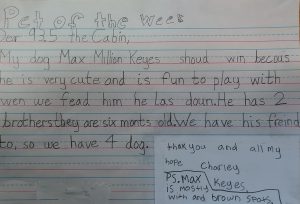 Pet of the week
Dear 93.5 the Cabin,
My dog Max Million Keyes shoud win becous
he is very cute and is fun to play with
wen we fead him he las daun. He has 2
brothers they are six monts old. We have his freind
to, so we have 4 dog.
thakyou and all my
hope Charley
Keyes
PS. Max
is mostly
with and brown spots.